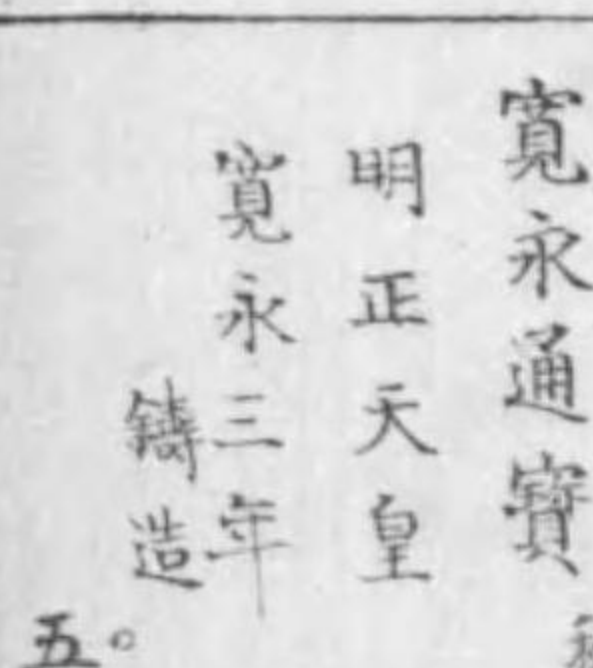 寛永通寳
明正天皇
寛永三年
鋳造
五。